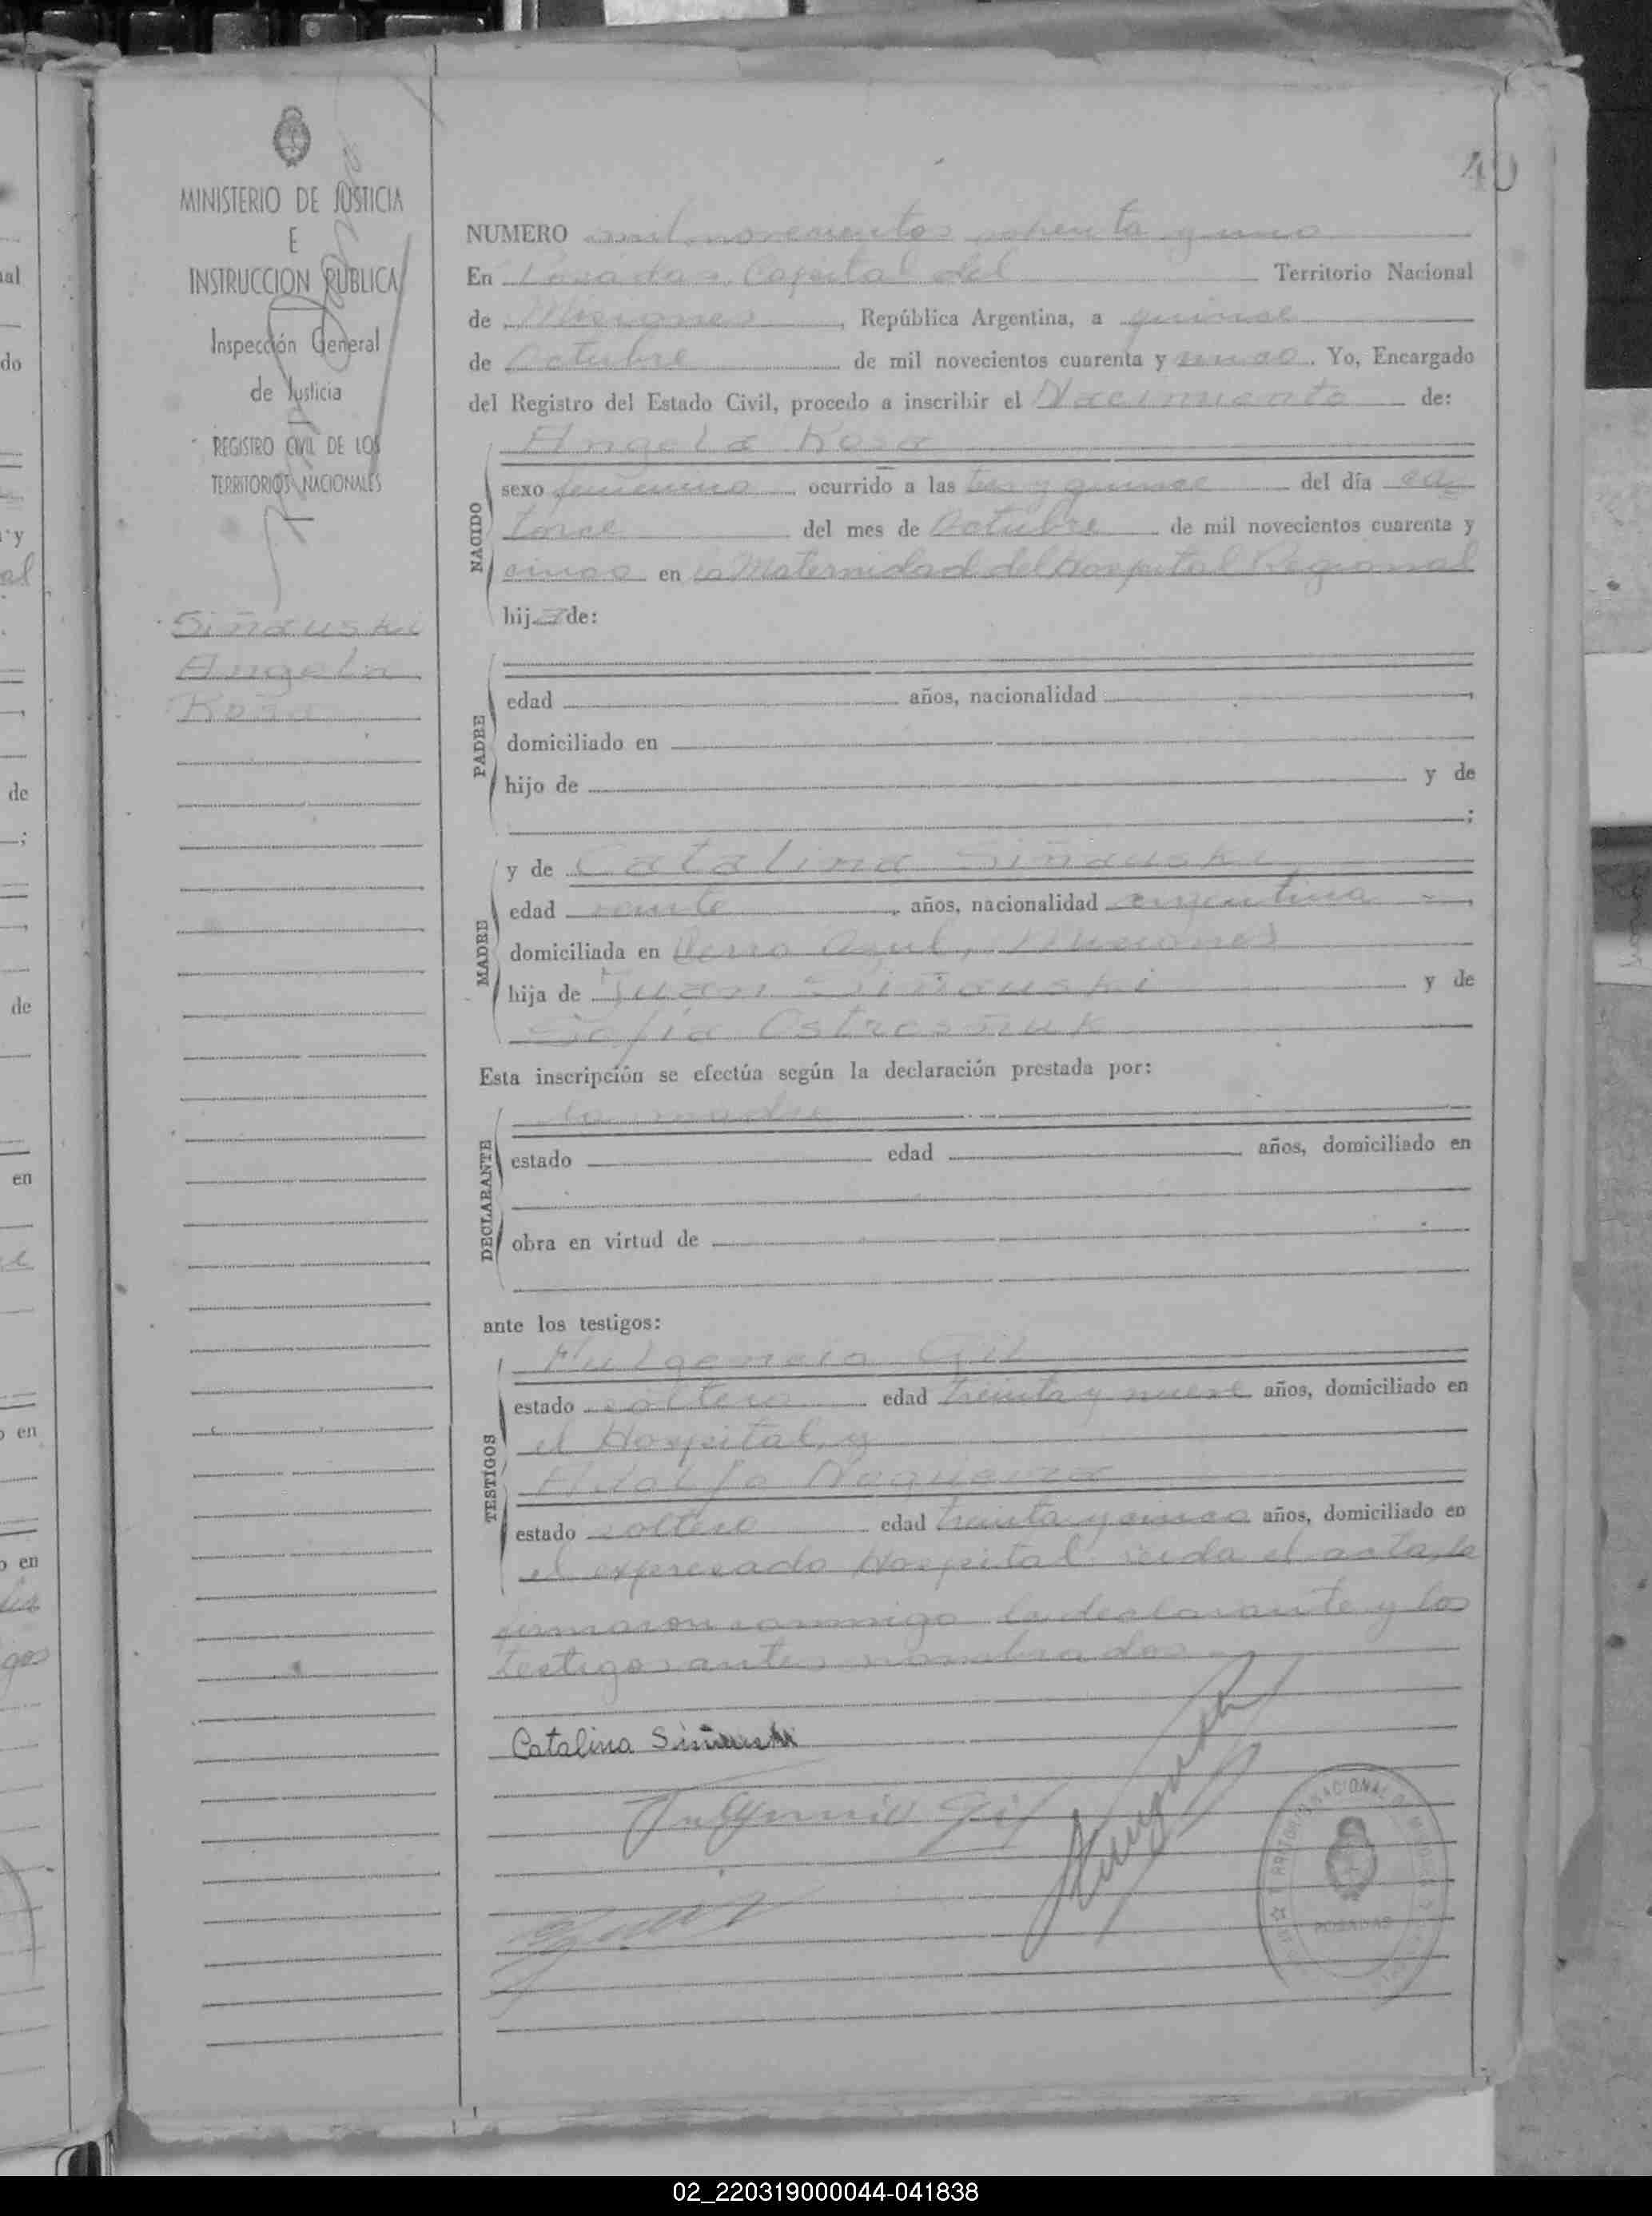 40
MINISTERIO DE JUSTICIA
E
INSTRUCCION PUBLICA
Inspección General
de Justicia
REGISTRO CIVIL DE LOS
TERRITORIOS NACIONALES
Siñauski
Angela
Rosa
NUMERO mil novecientos ochenta y uno
En Posadas Capital del Territorio Nacional
de Misiones, República Argentina, a quince
de Octubre de mil novecientos cuarenta y cinco. Yo, Encargado
del Registro del Estado Civil, procedo a inscribir el Nacimiento de:
Angela Rosa
NACIDO
sexo femenino ocurrido a las tres y quince del día ca
torce del mes de Octubre de mil novecientos cuarenta y
cinco en la Maternidad del Hospital Regional
hija de:
PADRE
edad años, nacionalidad ,
domiciliado en
hijo de y de
;
MADRE
y de Catalina Siñauski
edad veinte, años, nacionalidad argentina ,
domiciliada en Cerro Azul, Misiones
hija de Juan Siñauski y de
Sofia Ostrossñuk
Esta inscripción se efectúa según la declaración prestada por:
DECLARANTE
la madre
estado edad años, domiciliado en
obra en virtud de
ante los testigos:
TESTIGOS
Fulgencio Gil
estado soltero edad treinta y nueve años, domiciliado en
el Hospital, y
Adolfo Nogueira
estado soltero edad treinta y cinco años, domiciliado en
el expresado Hospital. Leida el acta, la
firmaron conmigo la declarante y los
testigos antes nombrados
Catalina Siñauski
Fulgencio Gil
POSADAS
02_220319000044-041838